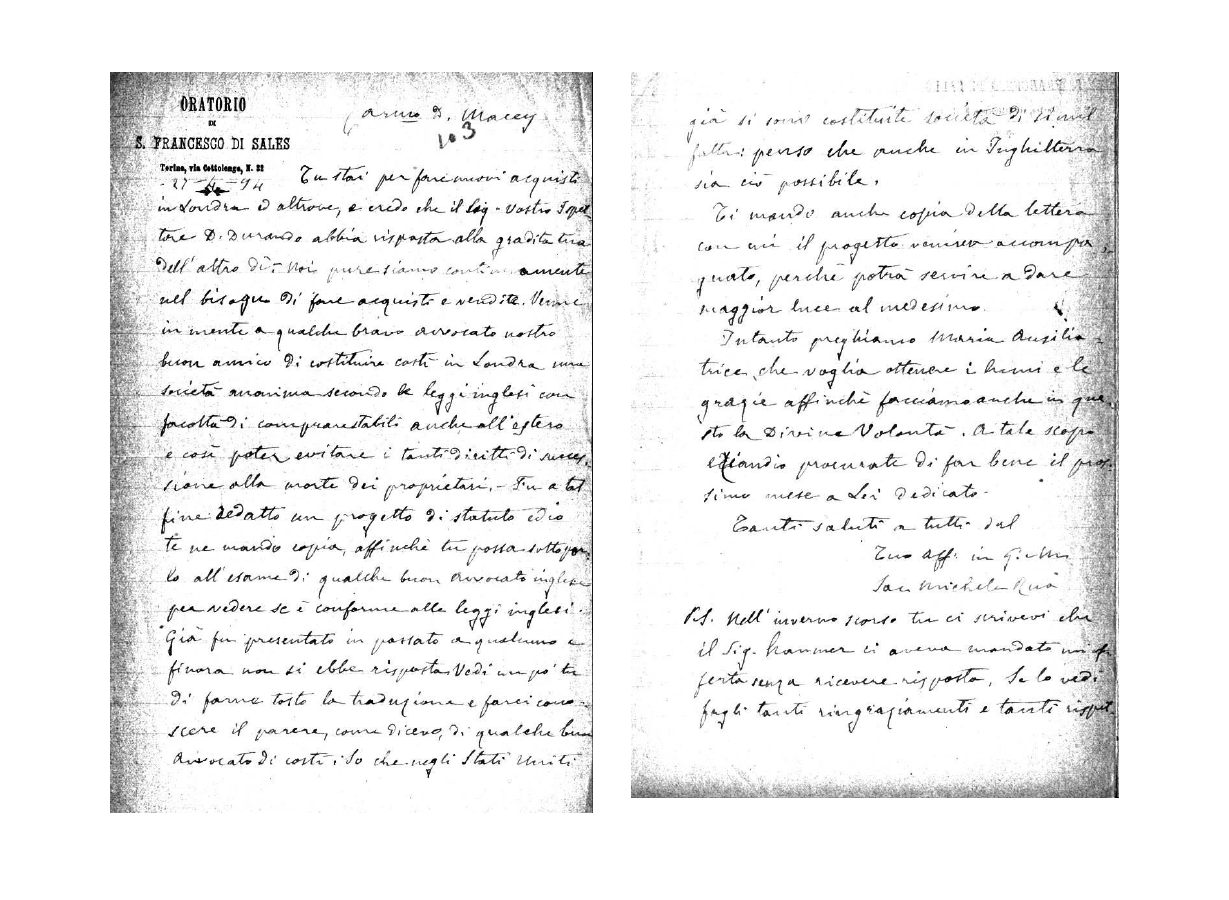 ORATORIO
DI
S. FRANCESCO DI SALES
Torino, via Cottolengo, N. 32
27-4-94
Carmo D. Macey
103
Tu stai per fare nuovi acquisti
in Londra ed altrove, e credo che il Sig. Vostro Ispet-
tore D. Durando abbia risposta alla gradita tua
dell'altro dì: Noi pure siamo continuamente
nel bisogno di fare acquisti e vendite. Venne
in mente a qualche bravo avvocato nostro
buon amico di costituire costì in Londra una
società anonima secondo le leggi inglesi con
facoltà di comprare stabili anche all'estero
e così poter evitare i tanti diritti di succes-
sione alla morte dei proprietari. - Fu a tal
fine redatto un progetto di statuto ed io
te ne mando copia, affinchè tu possa sottopor-
lo all'esame di qualche buon avvocato inglese
per vedere se è conforme alle leggi inglesi.
Già fu presentato in passato a qualcuno e
finora non si ebbe risposta. Vedi un po' tu
di farne tosto la traduzione e farci cono-
scere il parere, come dicevo, di qualche buon
Avvocato di costì: So che negli Stati Uniti
già si sono costituite società di simil
fatta: penso che anche in Inghilterra
sia ciò possibile.
Ti mando anche copia della lettera
con cui il progetto veniva accompa-
gnato, perchè potrà servire a dare
maggior luce al medesimo.
Intanto preghiamo Maria Ausilia-
trice che voglia ottenere i lumi e le
grazie affinchè facciamo anche in que-
sto la Divina Volontà. A tale scopo
eziandio procurate di far bene il pros-
simo mese a Lei dedicato.
Tanti saluti a tutti dal
Tuo Aff. in G. e M.
Sac. Michele Rua
P.S. Nell'inverno scorso tu ci scrivevi che
il Sig. ci aveva mandato un of-
ferta senza ricevere risposta. Se lo vedi
fagli tanti ringraziamenti e tanti rispet.